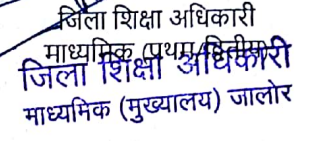 जिला शिक्षा अधिकारी
माध्यमिक (प्रथम/द्वितीय)
जिला शिक्षा अधिकारी
माध्यमिक (मुख्यालय) जालोर